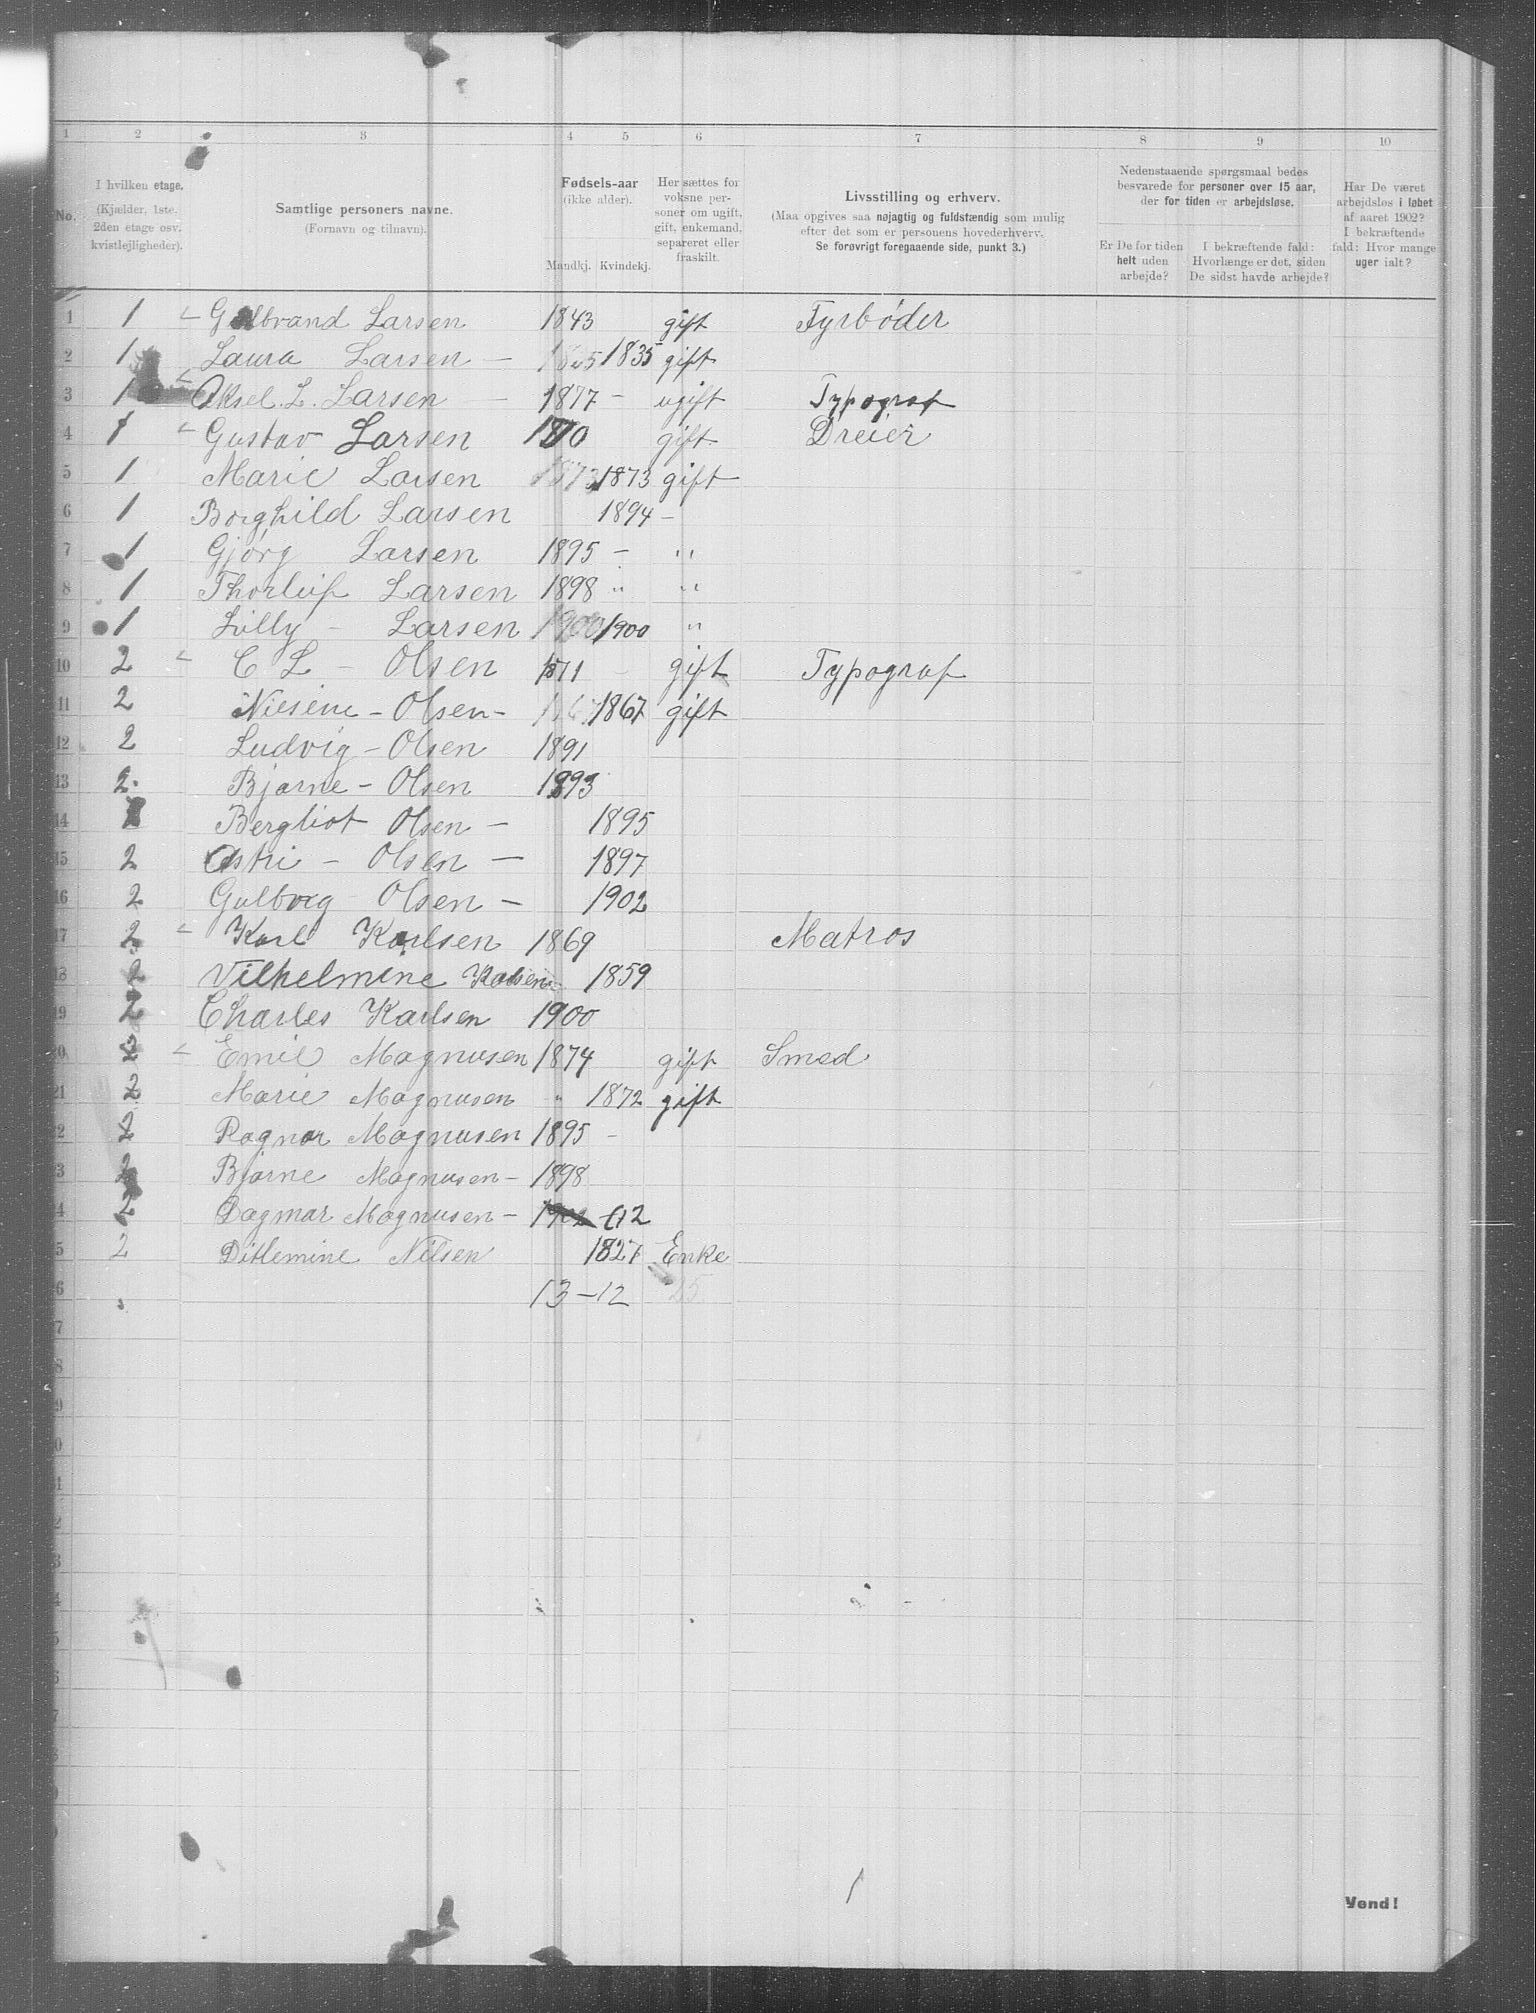 1 2 3 4 5 6 7 8 9 10
No.
I hvilken etage.
(Kjælder, 1ste, 2den etage osv. kvistlejligheder).
Samtlige personers navne.
(Fornavn og tilnavn).
Fødsels-aar
(ikke alder).
Mandkj. Kvindekj.
Her sættes for voksne personer om ugift, gift, enkemand, separeret eller fraskilt.
Livsstilling og erhverv.
(Maa opgives saa nøjagtig og fuldstændig som mulig efter det som er personens hovederhverv.
Se forøvrigt foregaaende side, punkt 3.)
Nedenstaaende spørgsmaal bedes besvarede for personer over 15 aar, der for tiden er arbejdsløse.
Er De for tiden helt uden arbejde?
I bekræftende fald: Hvorlænge er det, siden De sidst havde arbejde?
Har De været arbejdsløs i løbet af aaret 1902? I bekræftende fald: Hvor mange uger ialt?
1 1 Gulbrand Larsen 1843 gift Fyrbøder
2 1 Laura Larsen — 1835 gift
3 1 Aksel. L. Larsen — 1877 – ugift Typograf
4 1 Gustav Larsen 1870 gift Dreier
5 1 Marie Larsen 1873 1873 gift
6 1 Borghild Larsen 1894 –
7 1 Gjørg Larsen 1895 – "
8 1 Thorleif Larsen 1898 " "
9 1 Lilly – Larsen 1900 1900 "
10 2 C L – Olsen 1871 – gift Typograf
11 2 Niesine – Olsen – 1867 gift
12 2 Ludvig – Olsen 1891
13 2. Bjarne – Olsen 1893
14 Bergliot Olsen – 1895
15 2 Astri – Olsen — 1897
16 2 Gulborg Olsen – 1902
17 2 Karl Karlsen 1869 Matros
18 2 Vilhelmine Karlsen 1859
19 2 Charles Karlsen 1900
20 2 Emil Magnusen 1874 gift Smed
21 2 Marie Magnusen " 1872 gift
22 2 Ragnar Magnusen 1895 –
23 2 Bjarne Magnusen – 1898
24 2 Dagmar Magnusen – 1902
5 2 Ditlemine Nilsen 1827 Enke
6 13 – 12 25
Vend!